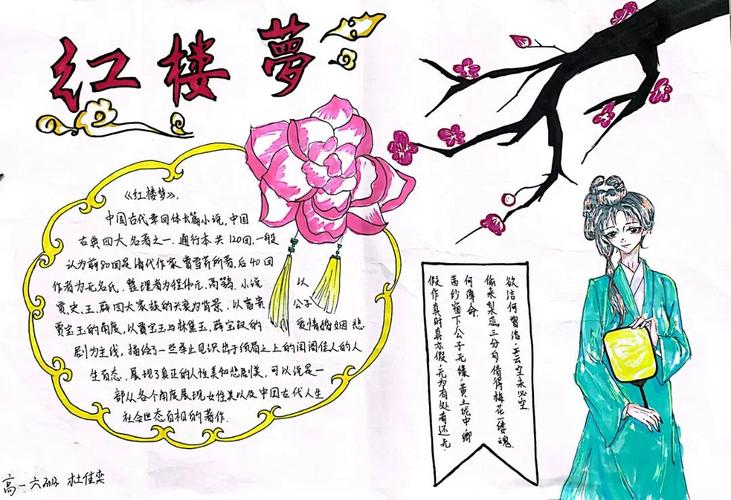 红楼夢
《红楼梦》,
中国古代章回体长篇小说,中国
古典四大名著之一,通行本共120回,一般
认为前80回是清代作家曹雪芹所著,后40回
作者为无名氏,整理者为程伟元、高鹗,小说 以
贾,史,王,薛四大家族的兴衰为背景,以富贵 公子
贾宝玉的角度,以贾宝玉与林黛玉,薛宝钗的 爱情婚姻悲
剧为主线,描绘了一些举止见识出于须眉之上的闺阁佳人的人
生百态,展现了真正的人性美和悲剧美,可以说是一
部从各个角度展现女性美以及中国古代人生
社会世态百相的著作.
欲洁何曾洁,云空未必空
偷来梨蕊三分白借得梅花一缕魂
何薄命
茜纱窗下公子无缘,黄土垄中,卿
假作真时真亦假,无为有处有还无
高一六班 杜佳奕